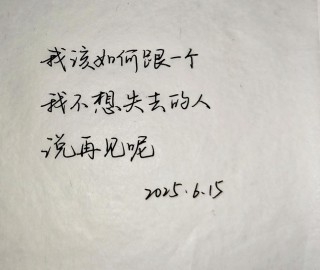 我该如何跟一个
我不想失去的人
说再见呢
2025.6.15